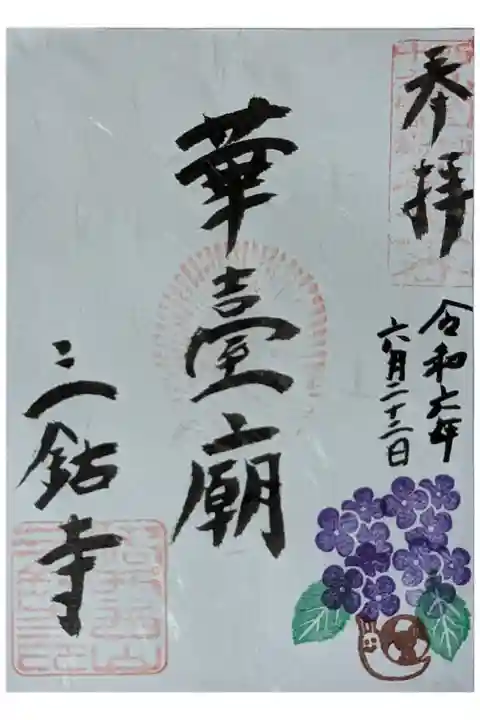 奉拝
令和六年
六月二十二日
華臺廟
三鈷寺